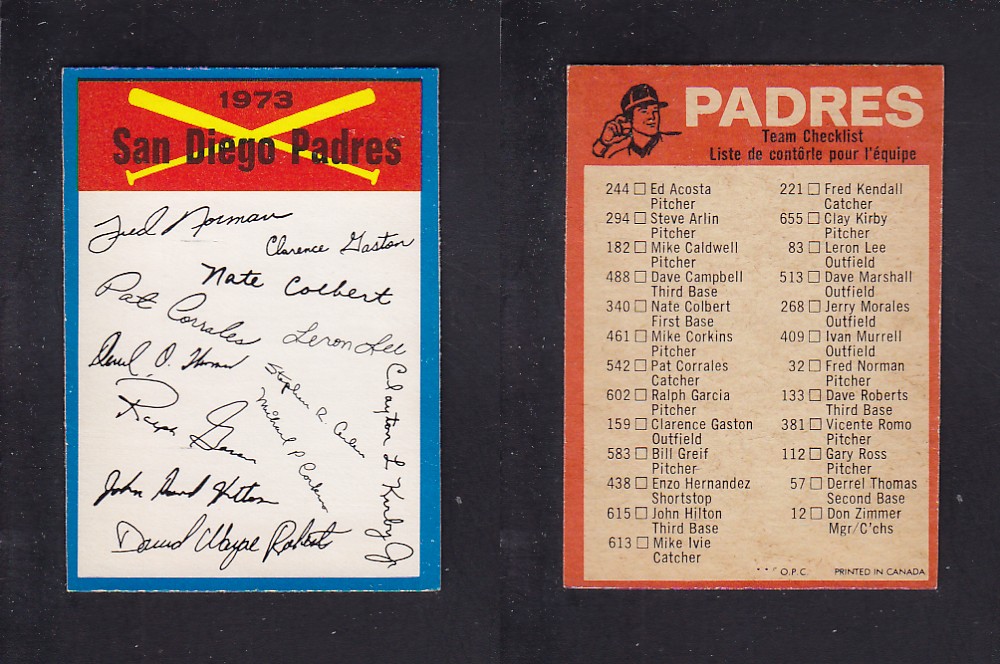 1973
San Diego Padres
Fred Norman
Clarence Gaston
Nate Colbert
Pat Corrales
Leron Lee
Derrel O. Thomas
Clayton L Kirby Jr
Michael P Corkins
Ralph Garcia
John David Hilton
David Wayne Roberts
PADRES
Team Checklist
Liste de contôrle pour l'équipe
244 □ Ed Acosta
Pitcher
294 □ Steve Arlin
Pitcher
182 □ Mike Caldwell
Pitcher
488 □ Dave Campbell
Third Base
340 □ Nate Colbert
First Base
461 □ Mike Corkins
Pitcher
542 □ Pat Corrales
Catcher
602 □ Ralph Garcia
Pitcher
159 □ Clarence Gaston
Outfield
583 □ Bill Greif
Pitcher
438 □ Enzo Hernandez
Shortstop
615 □ John Hilton
Third Base
613 □ Mike Ivie
Catcher
221 □ Fred Kendall
Catcher
655 □ Clay Kirby
Pitcher
83 □ Leron Lee
Outfield
513 □ Dave Marshall
Outfield
268 □ Jerry Morales
Outfield
409 □ Ivan Murrell
Outfield
32 □ Fred Norman
Pitcher
133 □ Dave Roberts
Third Base
381 □ Vicente Romo
Pitcher
112 □ Gary Ross
Pitcher
57 □ Derrel Thomas
Second Base
12 □ Don Zimmer
Mgr/C'chs
O.P.C. PRINTED IN CANADA